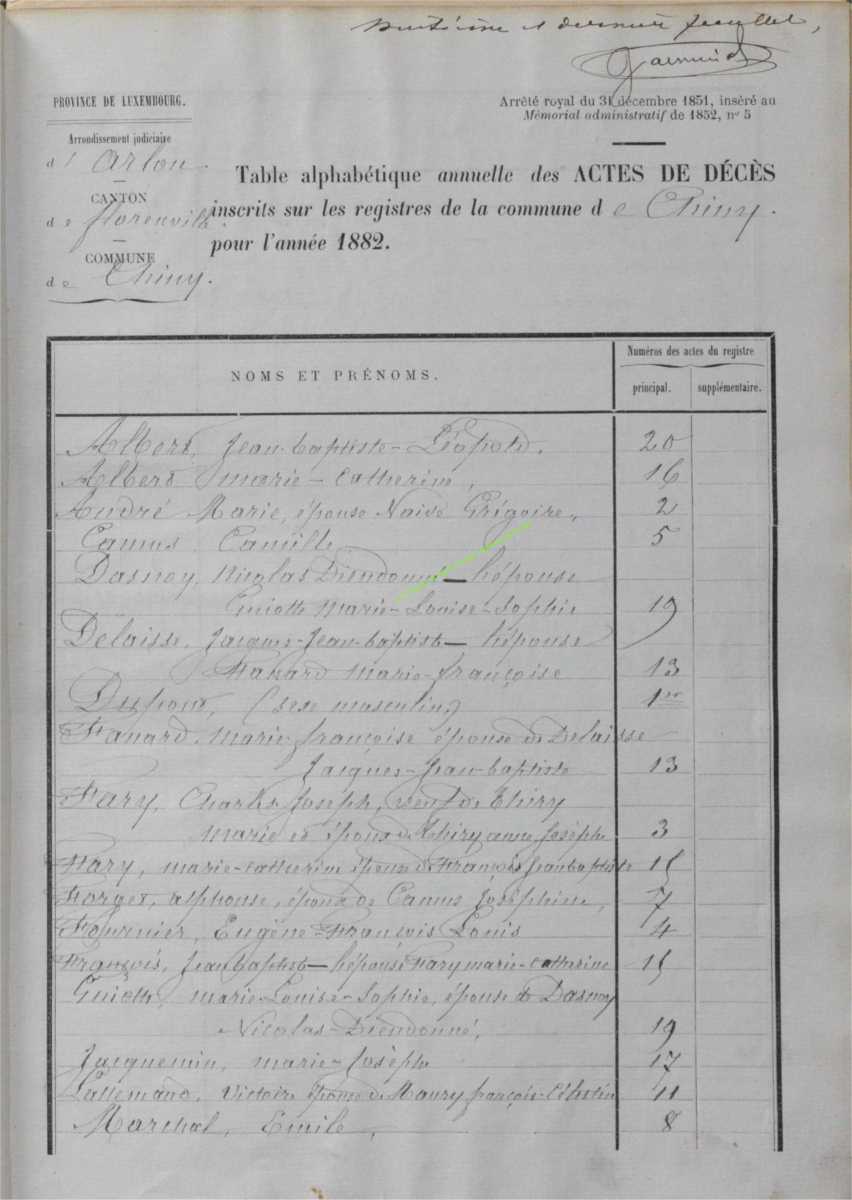 huitième et dernier feuillet,
PROVINCE DE LUXEMBOURG.
Arrêté royal du 31 décembre 1851, inséré au
Mémorial administratif de 1852, nº 5
Arrondissement judiciaire
d'Arlon.
CANTON
de Florenville.
COMMUNE
de Chiny.
Table alphabétique annuelle des ACTES DE DÉCÈS
inscrits sur les registres de la commune de Chiny.
pour l'année 1882.
NOMS ET PRÉNOMS.
Numéros des actes du registre
principal. supplémentaire.
Albert, Jean-baptiste-Léopold. 20
Albert marie-catherine, 16
André Marie, épouse Naisé Grégoire, 2
Camus Camille 5
Dasnoy, Nicolas Dieudonné – l'épouse
Guiotte marie-Louise-Sophie 19
Delaisse, Jacques-Jean-baptiste – l'épouse
Fanard marie-françoise 13
Dupont, (sexe masculin) 1er
Fanard, marie françoise épouse de Delaisse
Jacques-Jean-baptiste 13
Fary, Charles Joseph, veuf de Thiry
marie et époux de Thiry anne Joséphe 3
Fary, marie-catherine épouse de François Jean baptiste 15
Forget, alphonse, époux de Camus Joséphine, 7
Fournier, Eugène-François Louis 4
François, Jean baptiste – l'épouse Fary marie-catherine 15
Guiotte, marie-Louise-Sophie, épouse de Dasnoy
Nicolas-Dieudonné, 19
Jacquemin, marie-Joséphe 17
Lallemand, Victoire épouse de Maury françois-Célestin 11
Marchal, Emile, 8